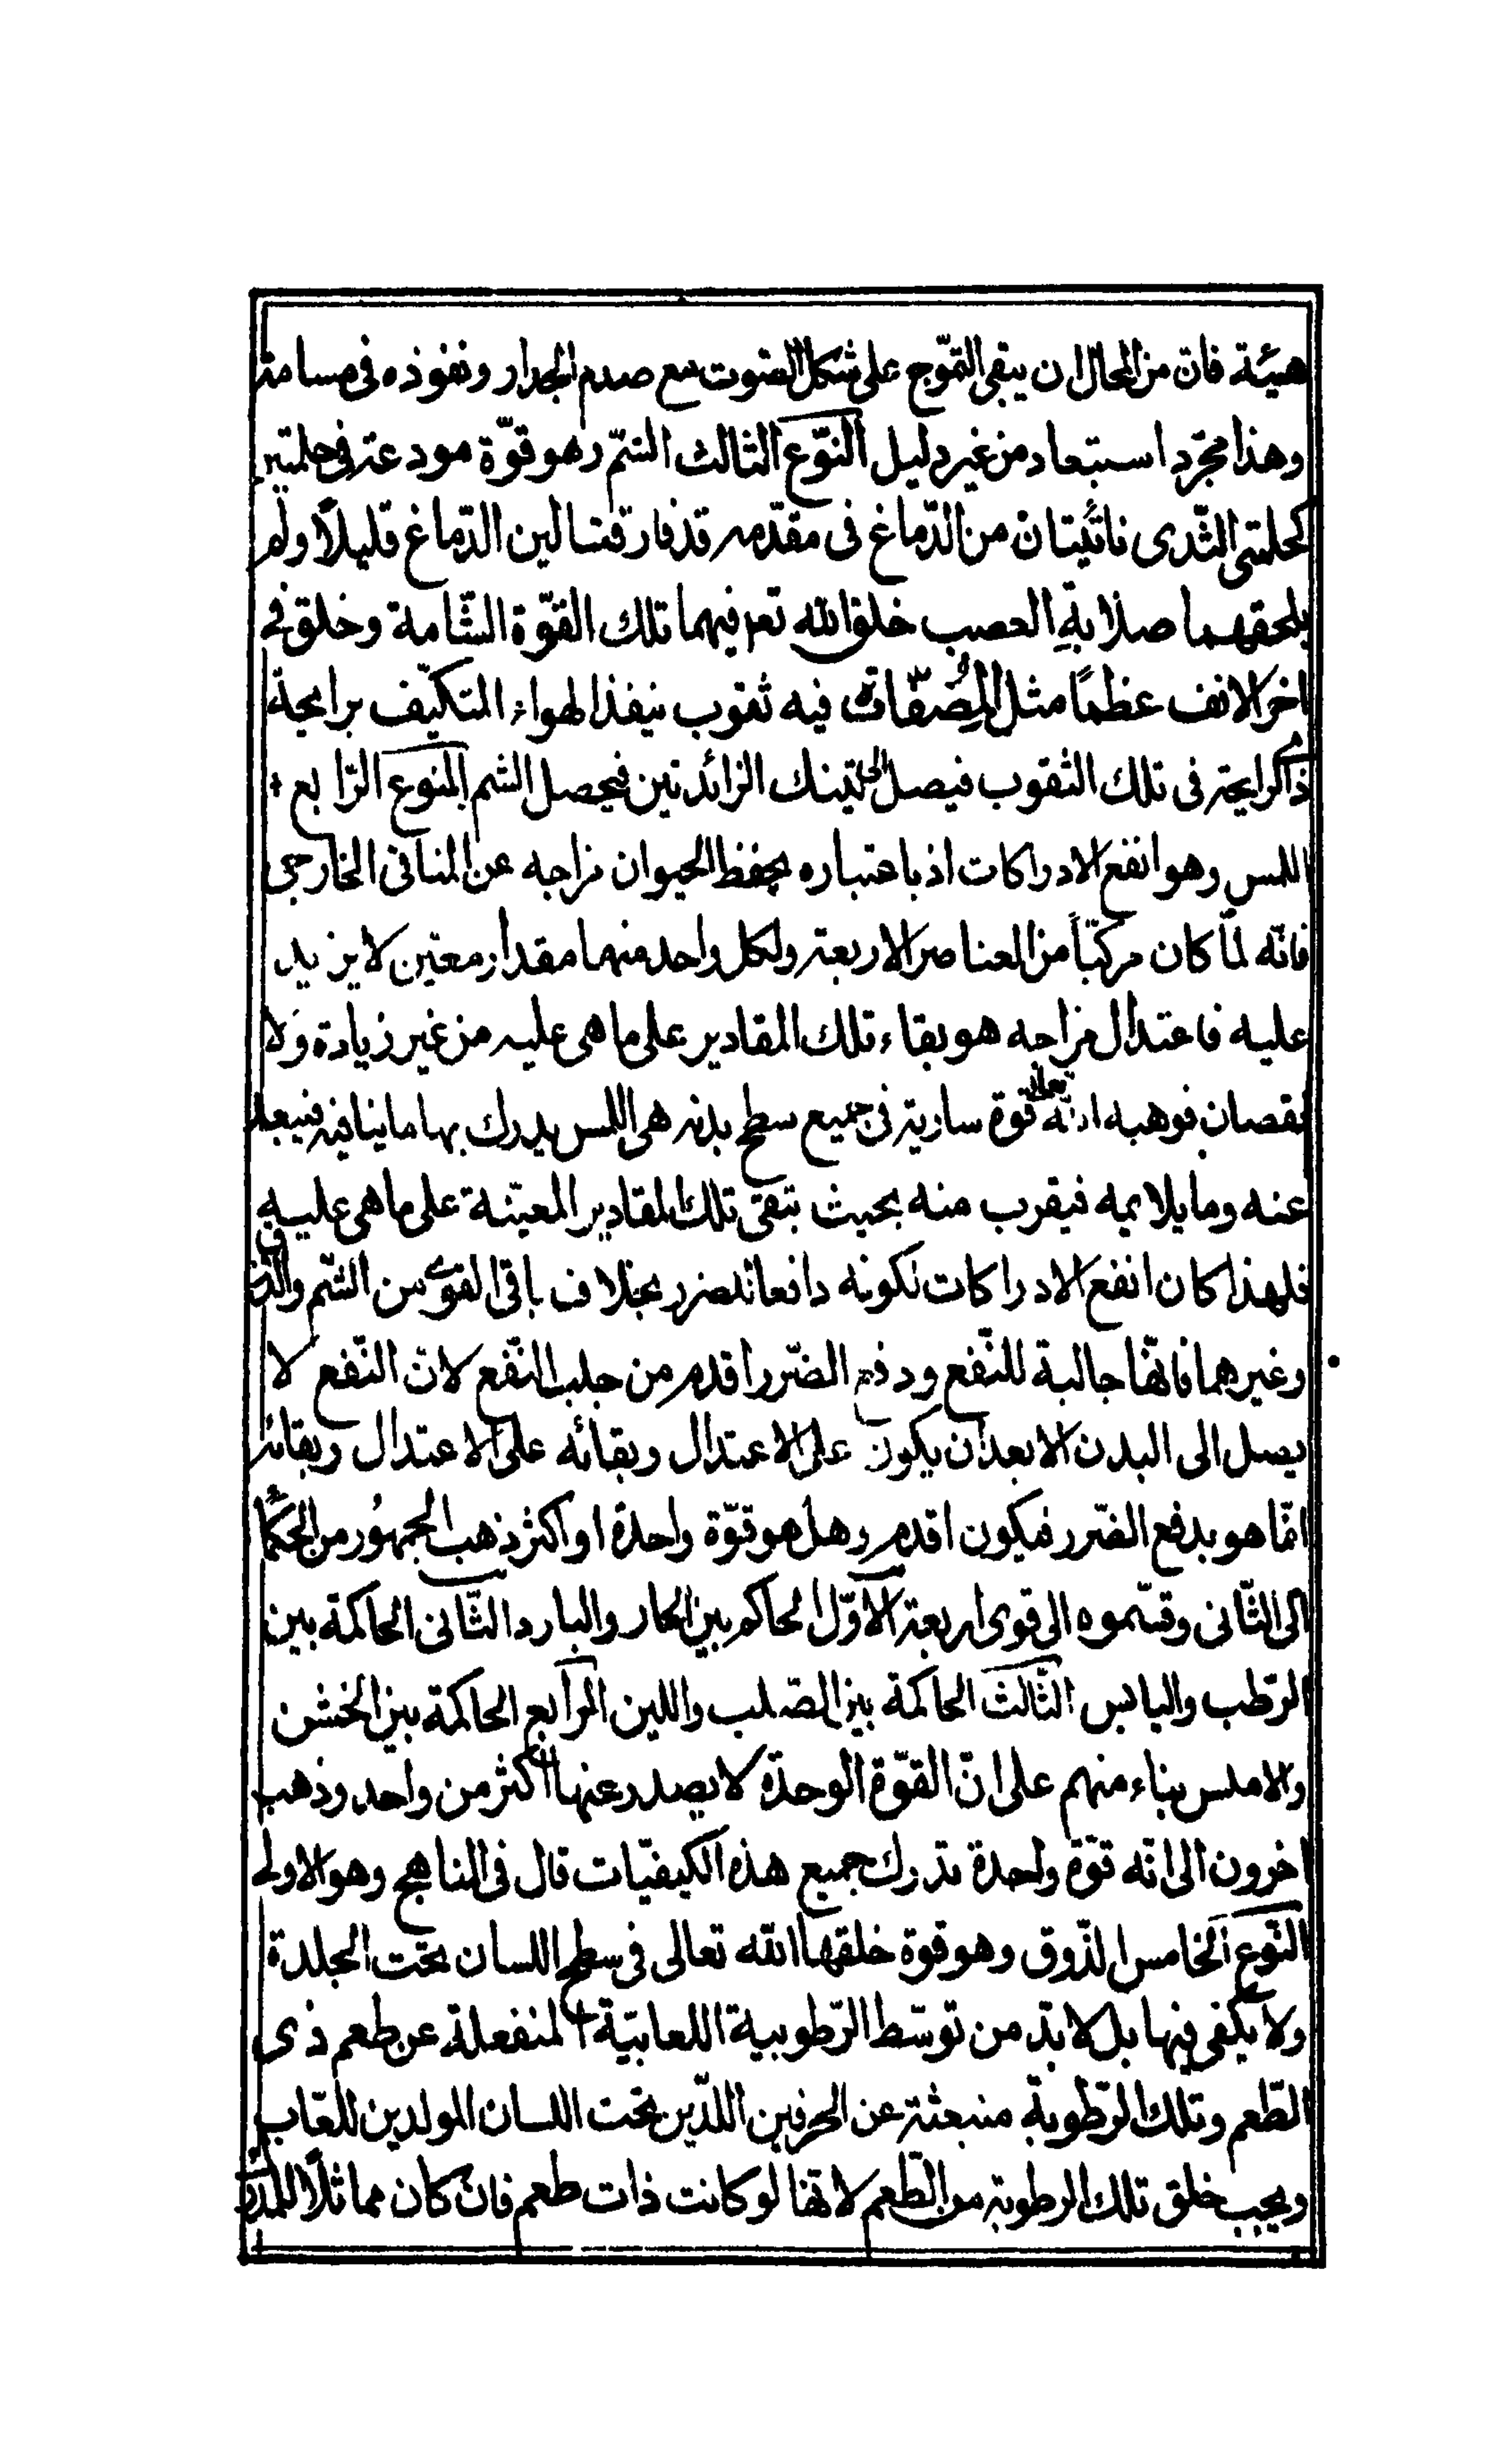 هيئة فان من المحال ان يبقى التموّج على شكل الصّوت مع صدم الجدار ونفوذه فى مسامه
وهذا مجرّد استبعاد من غير دليل النّوع الثالث الشّم وهو قوّة مودعة فى حلمتين
كحلمتى الثّدى ناتئيتان من الدّماغ فى مقدّمه قد فارقتا لين الدّماغ قليلاً ولم
يلحقهما صلابةِ العصب خلق الله تعم فيهما تلك القوّة الشّامة وخلق فى
اخر الانف عظمًا مثل المُصَفّات فيه ثقوب ينفذ الهواء المتكيّف برايحة
ذى الرايحة فى تلك الثقوب فيصل الى تينك الزائدتين فيحصل الشم النوع الرّابع
اللمس وهو انفع الادراكات اذ باعتباره يحفظ الحيوان مزاجه عن المنافى الخارجى
فانّه لمّا كان مركبّاً من العناصر الاربعة ولكل واحد منهما مقدار معيّن لا يزيد
عليه فاعتدال مزاجه هو بقاء تلك المقادير على ما هى عليه من غير زيادة وَلا
نقصان فوهبه الله تعالى قوة سارية فى جميع سطح بدنه هى اللمس يدرك بها ما ينافيه فيبعد
عنه وما يلايمه فيقرب منه بحيث تبقى تلك المقادير المعيّنة على ما هى عليه
فلهذا كان انفع الادراكات لكونه دافعا للضرر بخلاف باقى القوى من الشّم والذوق
وغيرهما فانهّا جالبة للنّفع ودفع الضّرر اقدم من جلب النّفع لانّ النّفع لا
يصل الى البدن الا بعد ان يكون على الاعتدال وبقائه على الاعتدال وبقائه
انمّا هو بدفع الضّرر فيكون اقدم وهل هو قوّة واحدة او اكثر ذهب الجمهُور من الحكمًا
الى الثّانى وقسّموه الى قوى اربعة الاوّل الحاكم بين الحار والبارد الثّانى الحاكمة بين
الرّطب واليابس الثّالث الحاكمة بين الصّلب واللين الرّابع الحاكمة بين الخشن
والاملس بناء منهم على انّ القوّة الوحدة لا يصدر عنها اكثر من واحد وذهب
اخرون الى انّه قوّة واحدة تدرك جميع هذه الكيفيّات قال فى المناهج وهو الاولى
النّوع الخامس الذّوق وهو قوة خلقها الله تعالى فى سطح اللسان تحت الجلدة
ولا يكفى فيها بل لا بدّ من توسّط الرّطوبية اللعابيّة المنفعلة عن طعم ذى
الطّعم وتلك الرّطوبة منبعثة عن الحرفين اللذّين تحت اللسان المولدين للعّاب
ويجب خلق تلك الرطوبة من الطّعم لانهّا لو كانت ذات طعم فان كان مماثلاً للمدرك